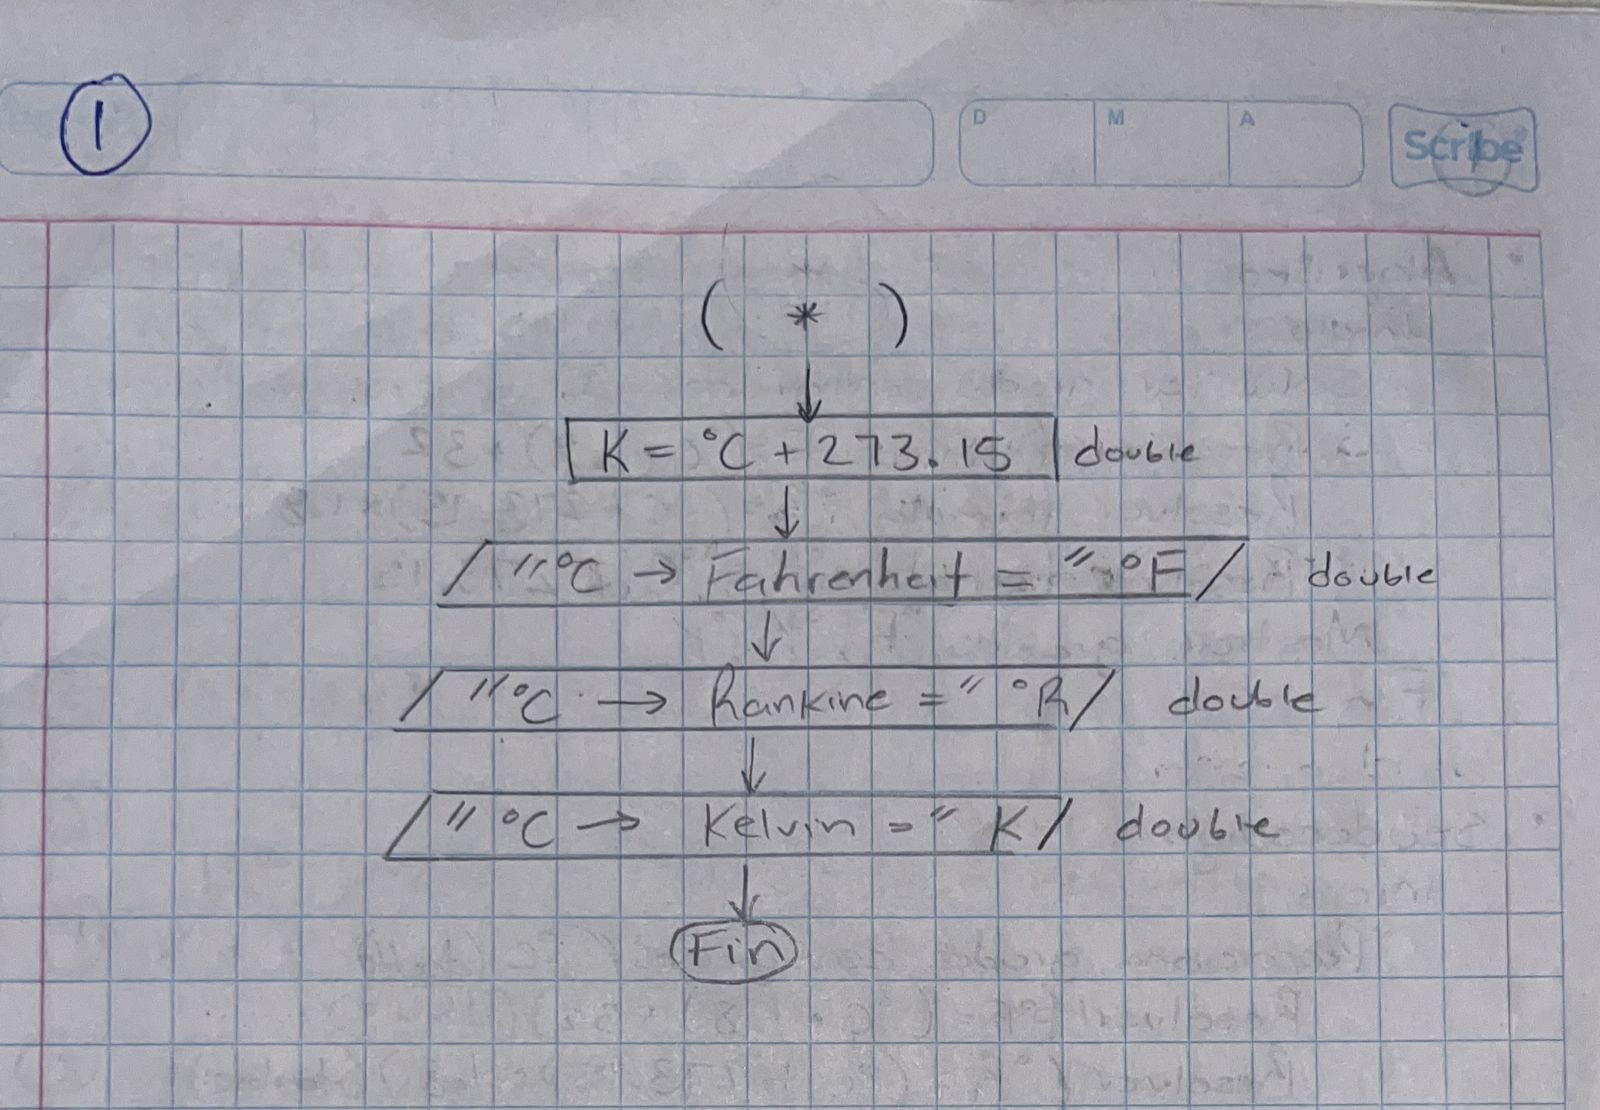 1
D M A Scribe
( * )
K = °C + 273.15 double
/ "°C → Fahrenheit = " °F / double
/ "°C → Rankine = " °R / double
/ "°C → Kelvin = " K / double
Fin